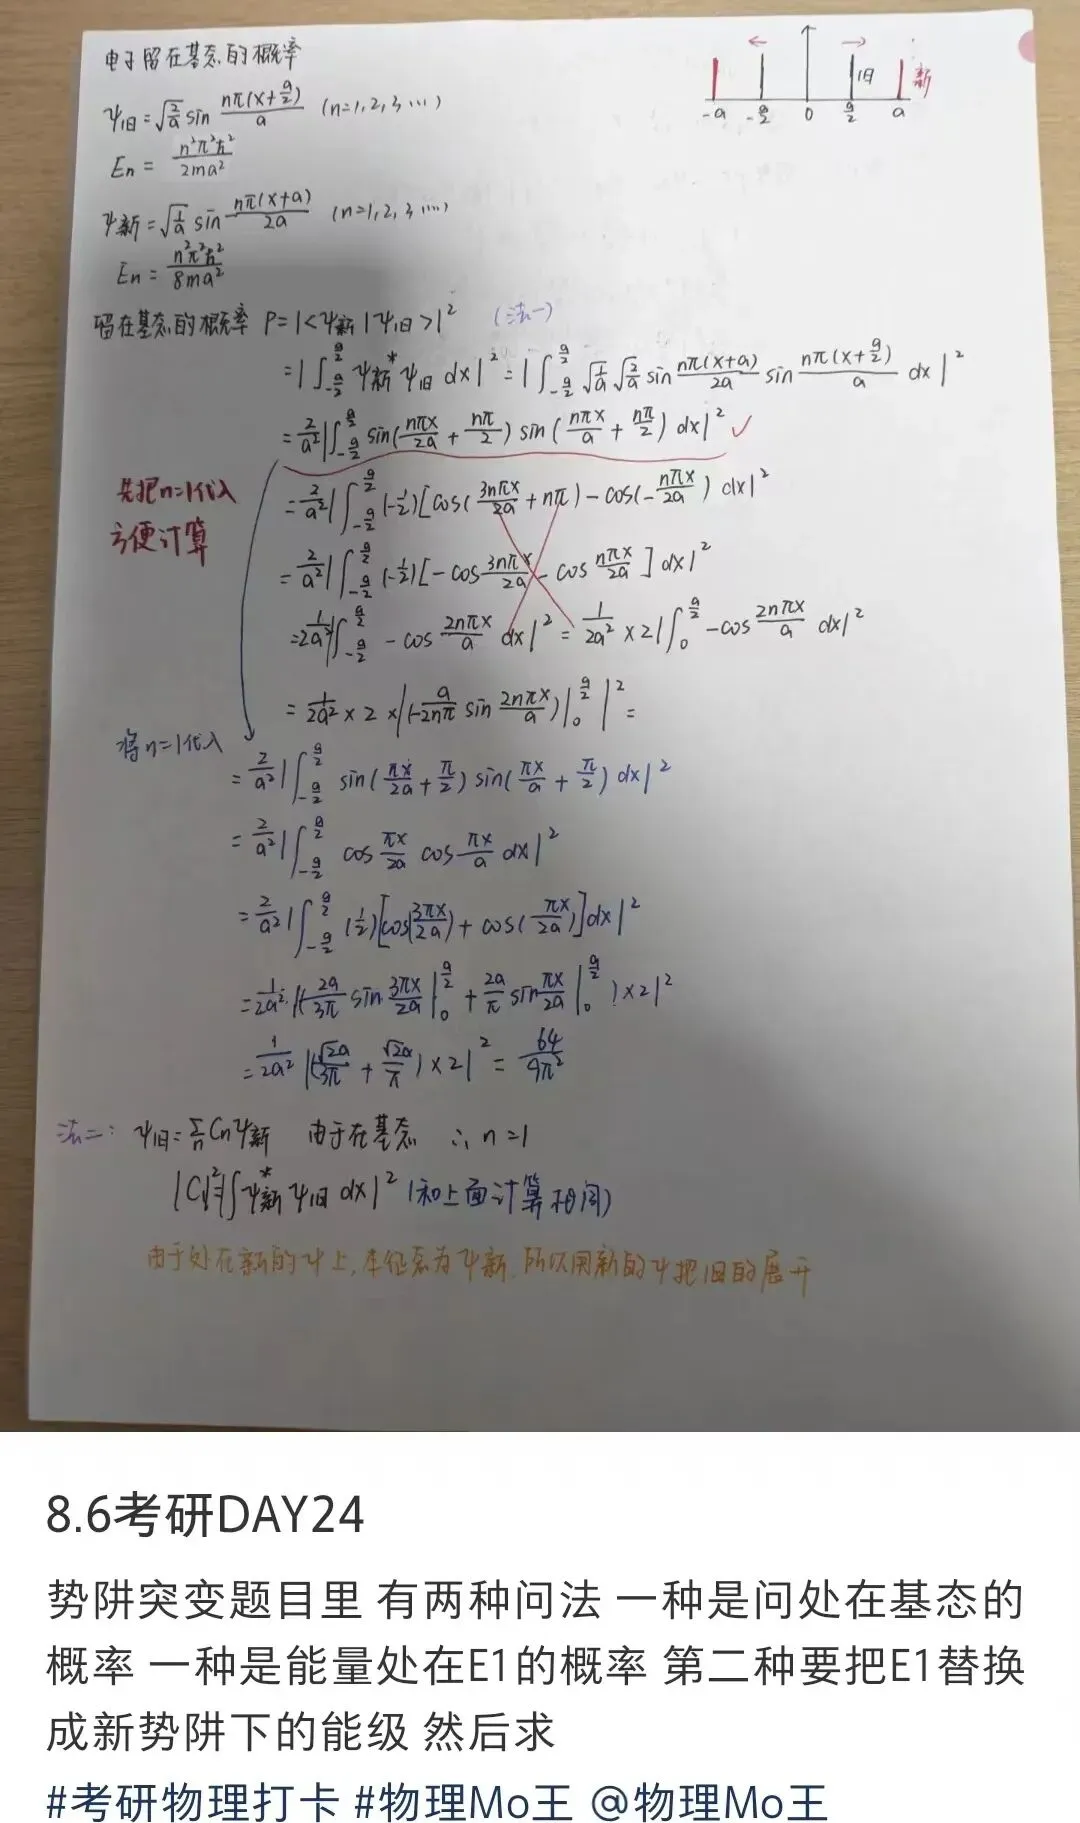 电子留在基态的概率
ψ旧=√(2/a) sin nπ(x+a/2)/a (n=1,2,3…)
En = n²π²ħ²/2ma²
ψ新=√(1/a) sin nπ(x+a)/2a (n=1,2,3…)
En = n²π²ħ²/8ma²
← → 旧 新
-a -a/2 0 a/2 a
留在基态的概率 P=|<ψ新|ψ旧>|² (法一)
=|∫_{-a/2}^{a/2} ψ新* ψ旧 dx|² = |∫_{-a/2}^{a/2} √(1/a) √(2/a) sin nπ(x+a)/2a sin nπ(x+a/2)/a dx|²
= 2/a² |∫_{-a/2}^{a/2} sin(nπx/2a + nπ/2) sin(nπx/a + nπ/2) dx|² ✓
先把n=1代入
方便计算
= 2/a² |∫_{-a/2}^{a/2} (-1/2)[cos(3nπx/2a + nπ) - cos(-nπx/2a) dx|²
= 2/a² |∫_{-a/2}^{a/2} (-1/2)[-cos 3nπx/2a - cos nπx/2a] dx|²
= 1/2a² |∫_{-a/2}^{a/2} -cos 2nπx/a dx|² = 1/2a² ×2|∫_0^{a/2} -cos 2nπx/a dx|²
= 1/2a² × 2 × |(-a/2nπ sin 2nπx/a)|_0^{a/2}|² =
将n=1代入
= 2/a² |∫_{-a/2}^{a/2} sin(πx/2a + π/2) sin(πx/a + π/2) dx|²
= 2/a² |∫_{-a/2}^{a/2} cos πx/2a cos πx/a dx|²
= 2/a² |∫_{-a/2}^{a/2} (1/2)[cos(3πx/2a) + cos(πx/2a)]dx|²
= 1/2a² · |(2a/3π sin 3πx/2a |_0^{a/2} + 2a/π sin πx/2a |_0^{a/2})×2|²
= 1/2a² |(√2a/3π + √2a/π)×2|² = 64/9π²
法二: ψ旧=Σn Cnψ新 由于在基态 ∴ n=1
|C₁|²=|∫ψ新* ψ旧 dx|² (和上面计算相同)
由于处在新的ψ上,本征态为ψ新,所以用新的ψ把旧的展开
8.6考研DAY24
势阱突变题目里 有两种问法 一种是问处在基态的
概率 一种是能量处在E1的概率 第二种要把E1替换
成新势阱下的能级 然后求
#考研物理打卡 #物理Mo王 @物理Mo王